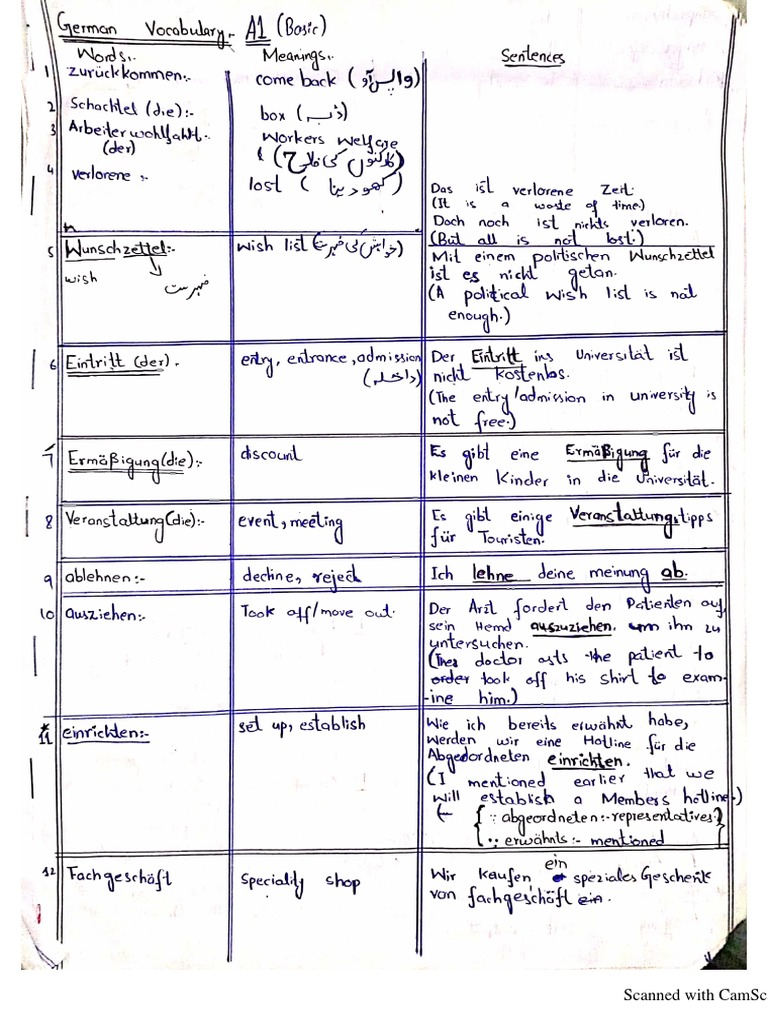 German Vocabulary:- A1 (Basic)
Words:- Meanings:- Sentences
1 zurückkommen:- come back (واپس آؤ)
2 Schachtel (die):- box (ڈبہ)
3 Arbeiterwohlfahrt:- Workers Welfare
(der) (کارکنوں کی فلاح)
4 verlorene :- lost (کھو دینا)
Das ist verlorene Zeit.
(It is a waste of time.)
Doch noch ist nichts verloren.
(But all is not lost.)
5 Wunschzettel:- wish list (خواہش کی فہرست)
wish فہرست
Mit einem politischen Wunschzettel
ist es nicht getan.
(A political wish list is not
enough.)
6 Eintritt (der). entry, entrance, admission
(داخلہ)
Der Eintritt ins Universität ist
nicht kostenlos.
(The entry/admission in university is
not free.)
7 Ermäßigung(die):- discount
Es gibt eine Ermäßigung für die
kleinen Kinder in die Universität.
8 Veranstaltung(die):- event, meeting
Es gibt einige Veranstaltungstipps
für Touristen.
9 ablehnen:- decline, reject Ich lehne deine meinung ab.
10 ausziehen:- Took off/move out.
Der Arzt fordert den Patienten auf,
sein Hemd auszuziehen. um ihn zu
untersuchen.
(The doctor asts the patient to
order took off his shirt to exam-
-ine him.)
11 einrichten:- set up, establish
Wie ich bereits erwähnt habe,
werden wir eine Hotline für die
Abgeordneten einrichten.
(I mentioned earlier that we
will establish a Members hotline.)
abgeordneten:- representatives
erwähnts:- mentioned
12 Fachgeschäft Speciality shop
Wir kaufen ein speziales Geschenk
von fachgeschäft ein.
Scanned with CamSc